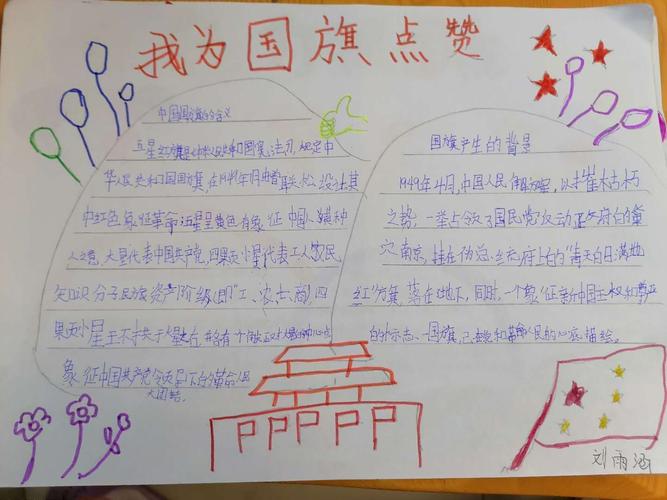 我为国旗点赞
中国国旗的含义
五星红旗是中华人民共和国宪法规定中
华人民共和国国旗,在1949年月由曾联松设计其
中红色象征革命五星呈黄色有象征中国人黄种
人之意,大星代表中国共产党,四颗小星代表工人农民
知识分子民族资产阶级(即"工、农士商)四
颗小星于大星左各有一个
象征中国共产党领导下的革命人民
大团结。
国旗产生的背景
1949年4月,中国人民解放军,以摧枯朽
之势,一举占领了国民党反动政府的巢
穴南京,挂在伪总统府上的"青天白日满地
红"旗落在地下,同时,一个象征新中国主权和尊严
的标志、国旗,已在人民的心底描绘。
刘雨涵